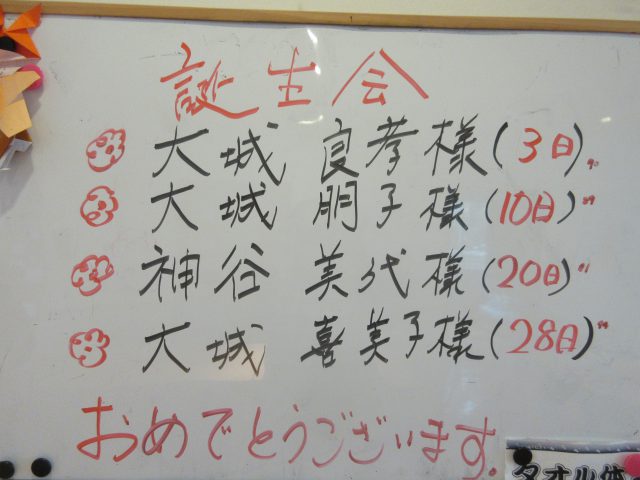 誕生会
大城 良孝様(3日)
大城 朋子様(10日)
神谷 美代様(20日)
大城 喜美子様(28日)
おめでとうございます.
タオル体